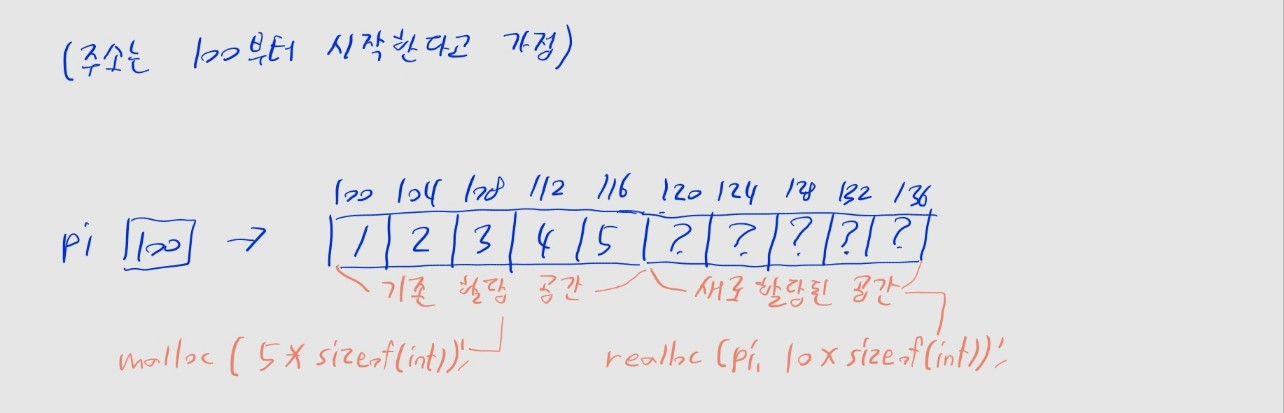 (주소는 100부터 시작한다고 가정)
100 104 108 112 116 120 124 128 132 136
pi 100 → 1 2 3 4 5 ? ? ? ? ?
기존 할당 공간 새로 할당된 공간
malloc ( 5 * sizeof(int)); realloc (pi, 10 * sizeof(int));